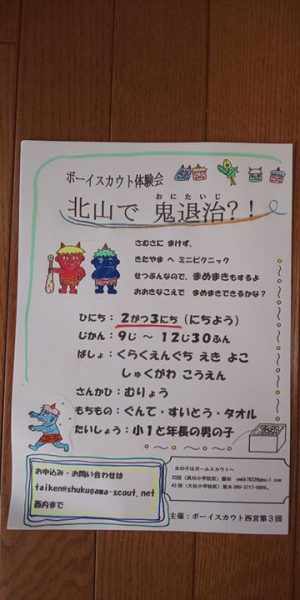 ボーイスカウト体験会
北山で 鬼退治?!
おにたいじ
さむさに まけず、
きたやま へ ミニピクニック
せつぶんなので、まめまきもするよ
おおきなこえで まめまきできるかな?
ひにち:2がつ3にち(にちよう)
じかん:9じ ~ 12じ30ふん
ばしょ:くらくえんぐち えき よこ
しゅくがわ こうえん
さんかひ:むりょう
もちもの:ぐんて・すいとう・タオル
たいしょう:小1と年長の男の子
お申込み・お問い合わせは
taiken@shukugawa-scout.net
西内まで
女の子はガールスカウトへ
主催:ボーイスカウト西宮第3団